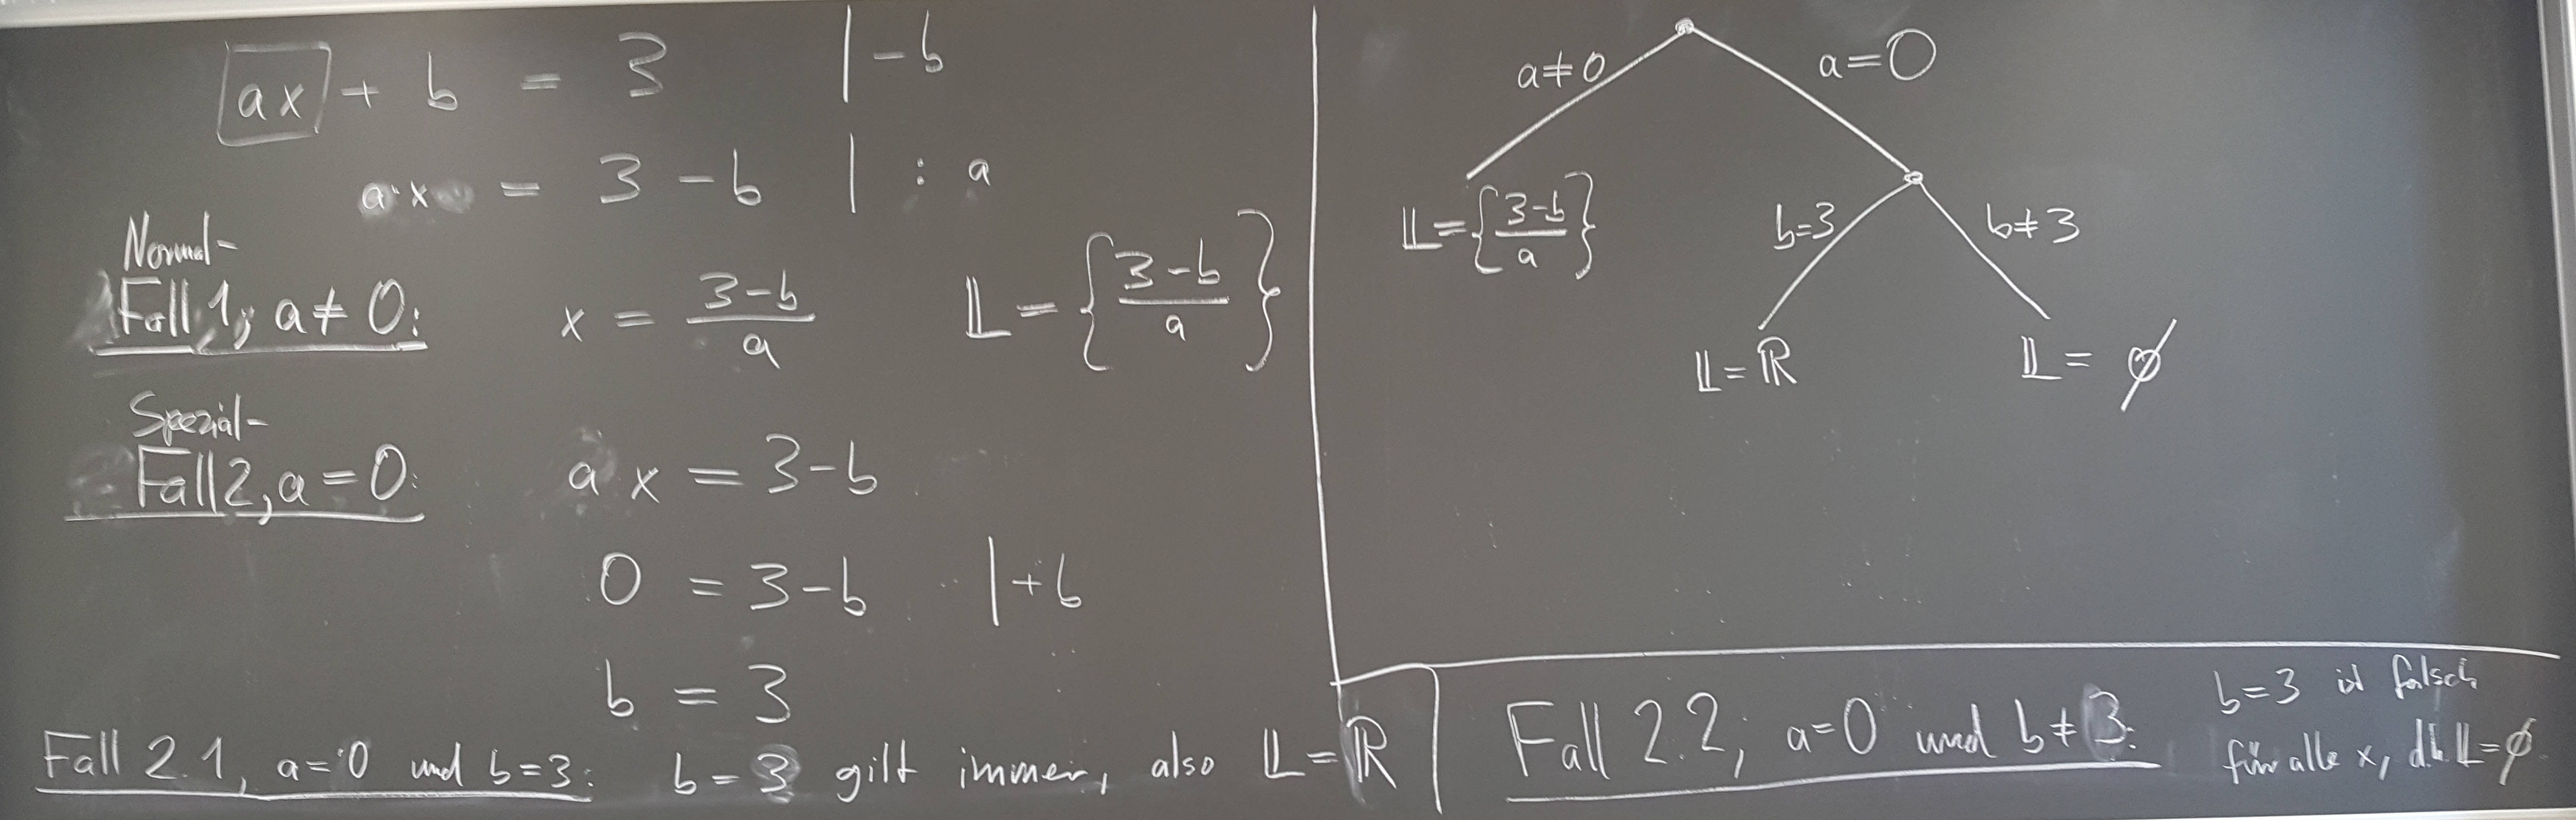 ax + b = 3 | -b
ax = 3 - b | : a
Normal-
Fall 1, a ≠ 0: x = (3-b)/a 𝕃 = {(3-b)/a}
Spezial-
Fall 2, a = 0: a x = 3-b
0 = 3-b | +b
b = 3
Fall 2.1, a=0 und b=3: b = 3 gilt immer, also 𝕃 = ℝ
a≠0 a=0
𝕃={(3-b)/a} b=3 b≠3
𝕃=ℝ 𝕃= ∅
Fall 2.2, a=0 und b≠3: b=3 ist falsch
für alle x, d.h. 𝕃=∅